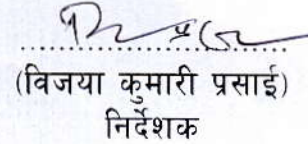 (विजया कुमारी प्रसाई)
निर्देशक